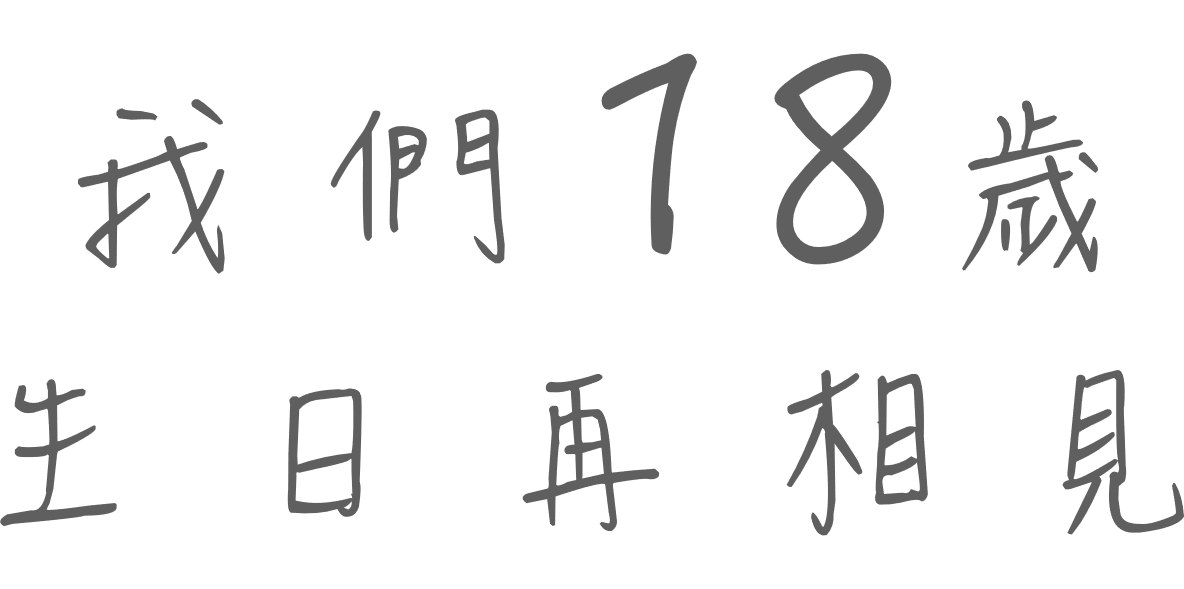 我們18歲
生日再相見